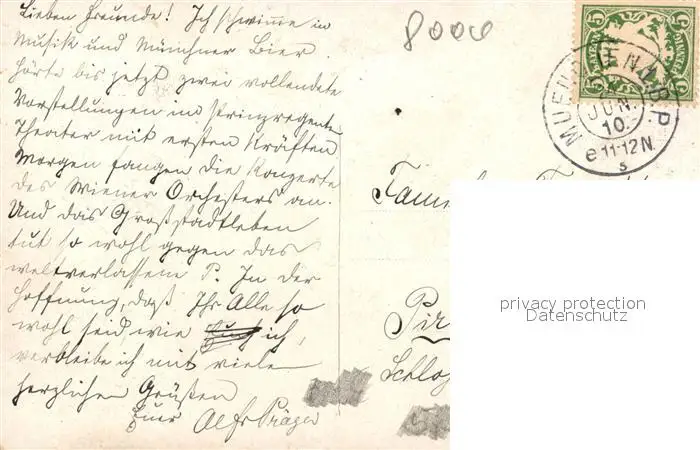 Lieben Freunde! Ich schwimme in
Musik und Münchner Bier.
Hörte bis jetzt zwei vollendete
Vorstellungen im Prinzregenten
Theater mit ersten Kräften
Morgen fangen die Konzerte
des Wiener Orchesters an.
Und das Großstadtleben
tut so wohl gegen das
weltverlassene P. In der
Hoffnung, daß Ihr Alle so
wohl seid wie ich,
verbleibe ich mit vielen
herzlichen Grüßen
Euer Alf
8000
MUENCHEN
JUN.
10.
11-12N.
Schloß
privacy protection
Datenschutz